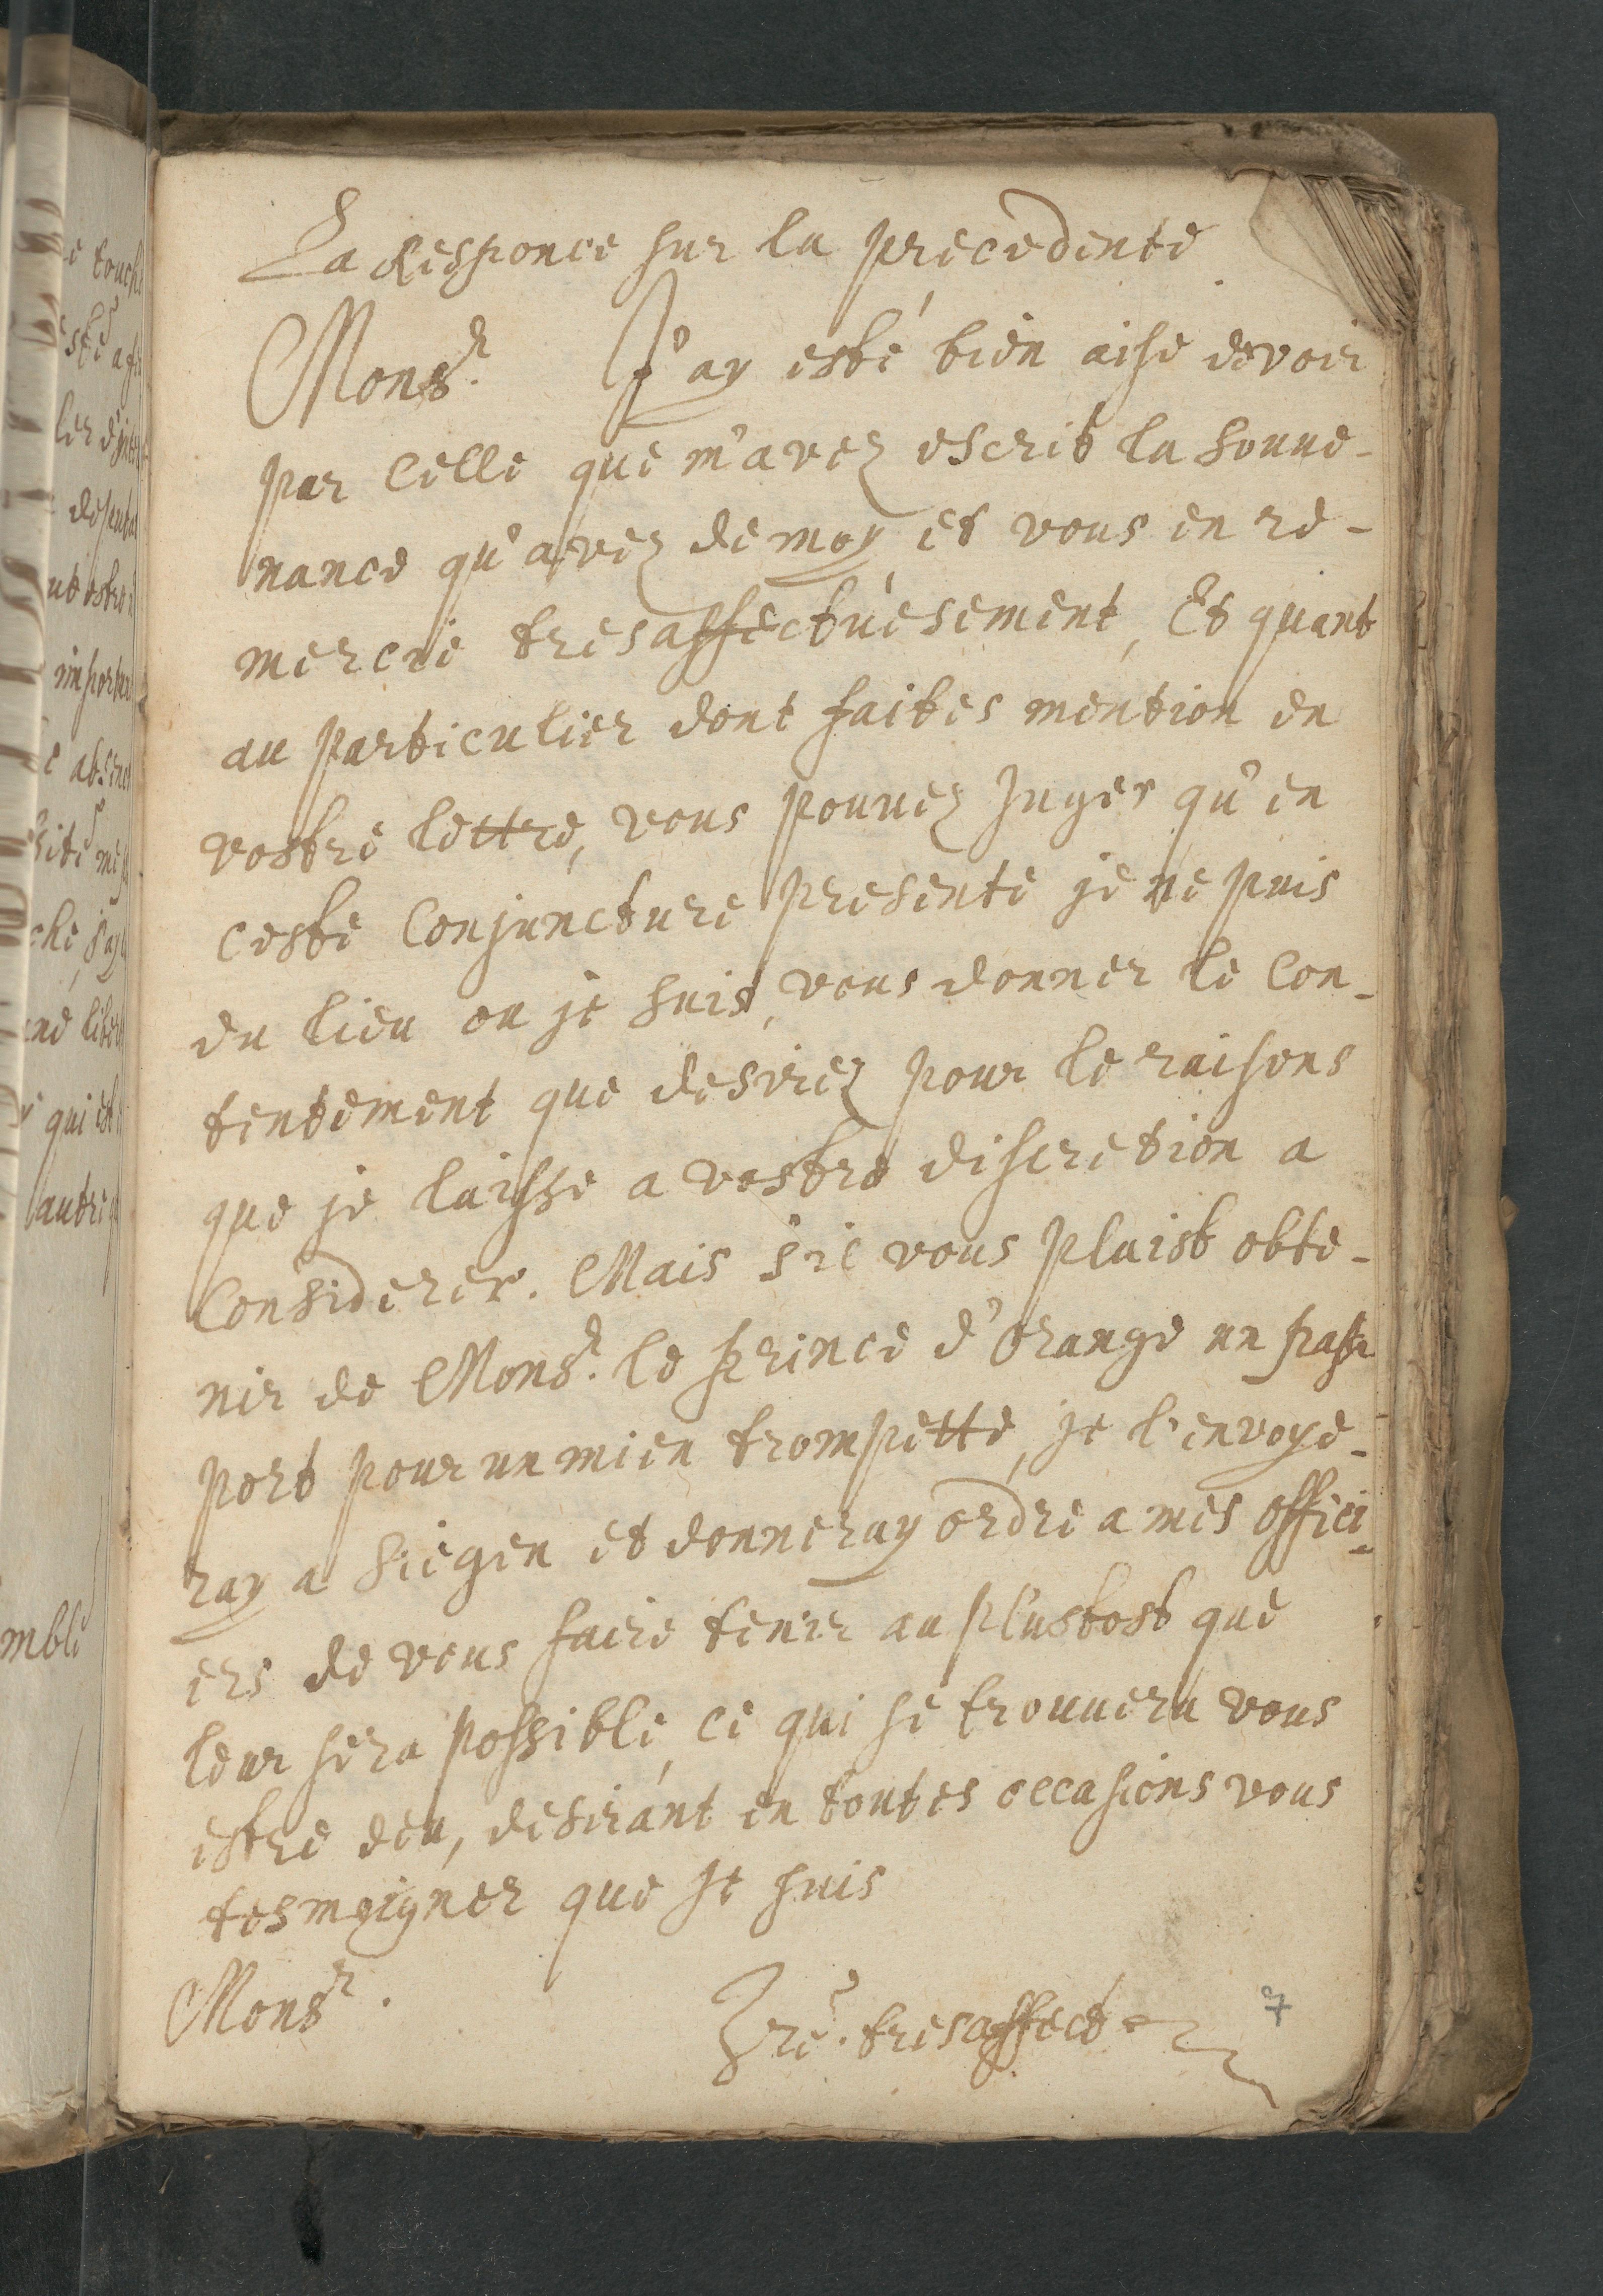 La Responce sur la precedente
Monsr. J'ay esté bien aise devoir
par celle que m'avez escrit la souue-
nance qu'avez de moy et vous en re-
mercie tresaffectuesement, Et quant
au particulier dont faites mention en
vostre lettre, vous pouuez Juger qu'en
ceste Conjuncture presente je ne puis
du lieu ou je suis, vous donner le Con-
tentement que desirez pour le raisons
que je laisse a vostre discretion a
Considerer. Mais s'il vous plaist obte-
nir de Monsr. le Prince d'Orange un passe
port pour un mien trompette, je l'envoye-
ray a Siegen et donneray ordre a mes offici-
ers de vous faire tenir au plustost que
leur sera possible, ce qui se trouuera vous
estre deu, desirant en toutes occasions vous
tesmoigner que je suis
Monsr.
Vre. tresaffect
7
e touche
desput
import
absenc
ché, s'ay
qui est
autre
mble